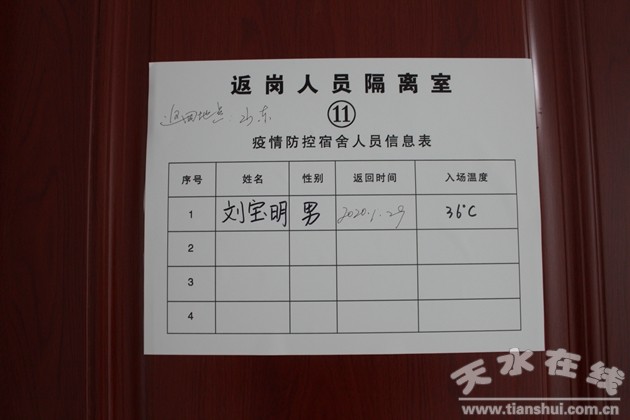 返岗人员隔离室
⑪
返回地点：山东
疫情防控宿舍人员信息表
序号 姓名 性别 返回时间 入场温度
1 刘宝明 男 2020.1.29 36℃
2
3
4
天水在线
www.tianshui.com.cn